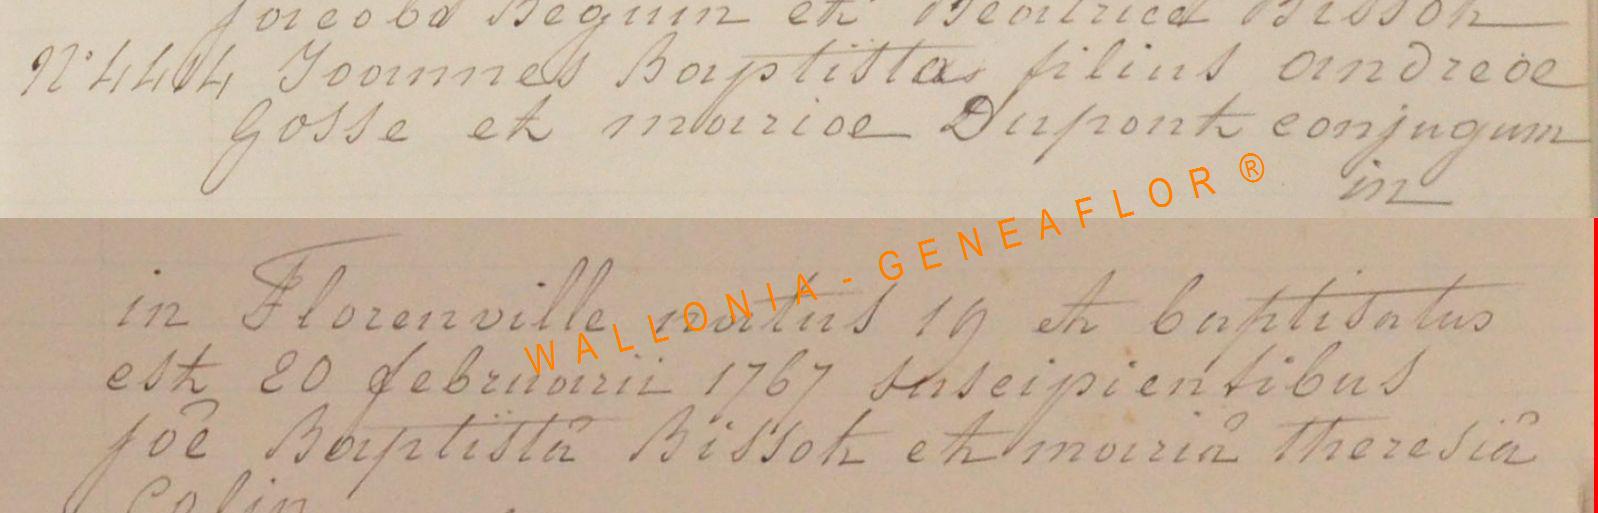 Jacobo Beguin et Beatrice Bissot
N° 4414 Joannes Baptista filius Andreae
Gosse et mariae Dupont conjugum
in
in Florenville natus 19 et baptisatus
est 20 februarii 1767 suscipientibus
joe Baptistâ Bissot et mariâ theresiâ
Colin
WALLONIA - GENEAFLOR ®